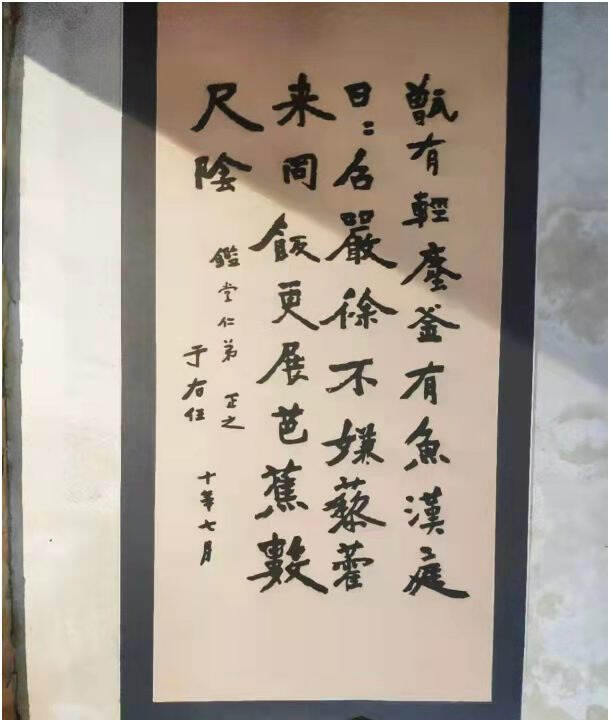 甑有輕塵釜有魚漢庭
日〻召嚴徐不嫌藜藿
来同飯更展芭蕉數
尺陰
鑑堂仁弟 正之
于右任 十年七月